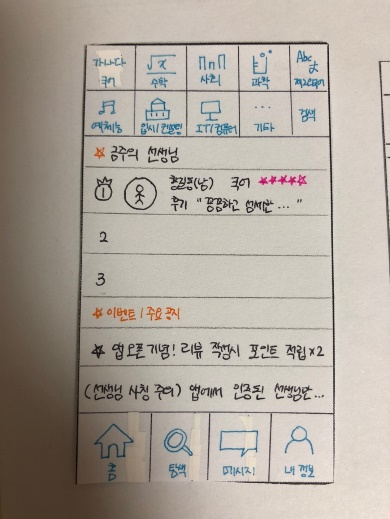 가나다 √x ΠΠΠ Abc
국어 수학 사회 과학 제2외국어
예체능 입시/컨설팅 IT/컴퓨터 기타 검색
☆ 금주의 선생님
1 홍길동(남) 국어 ★★★★☆
후기 "꼼꼼하고 섬세한 ..."
2
3
☆ 이벤트 / 주요 공지
☆ 앱 오픈 기념! 리뷰 작성시 포인트 적립 x2
(선생님 사칭 주의) 앱에서 인증된 선생님만...
홈 탐색 메시지 내 정보